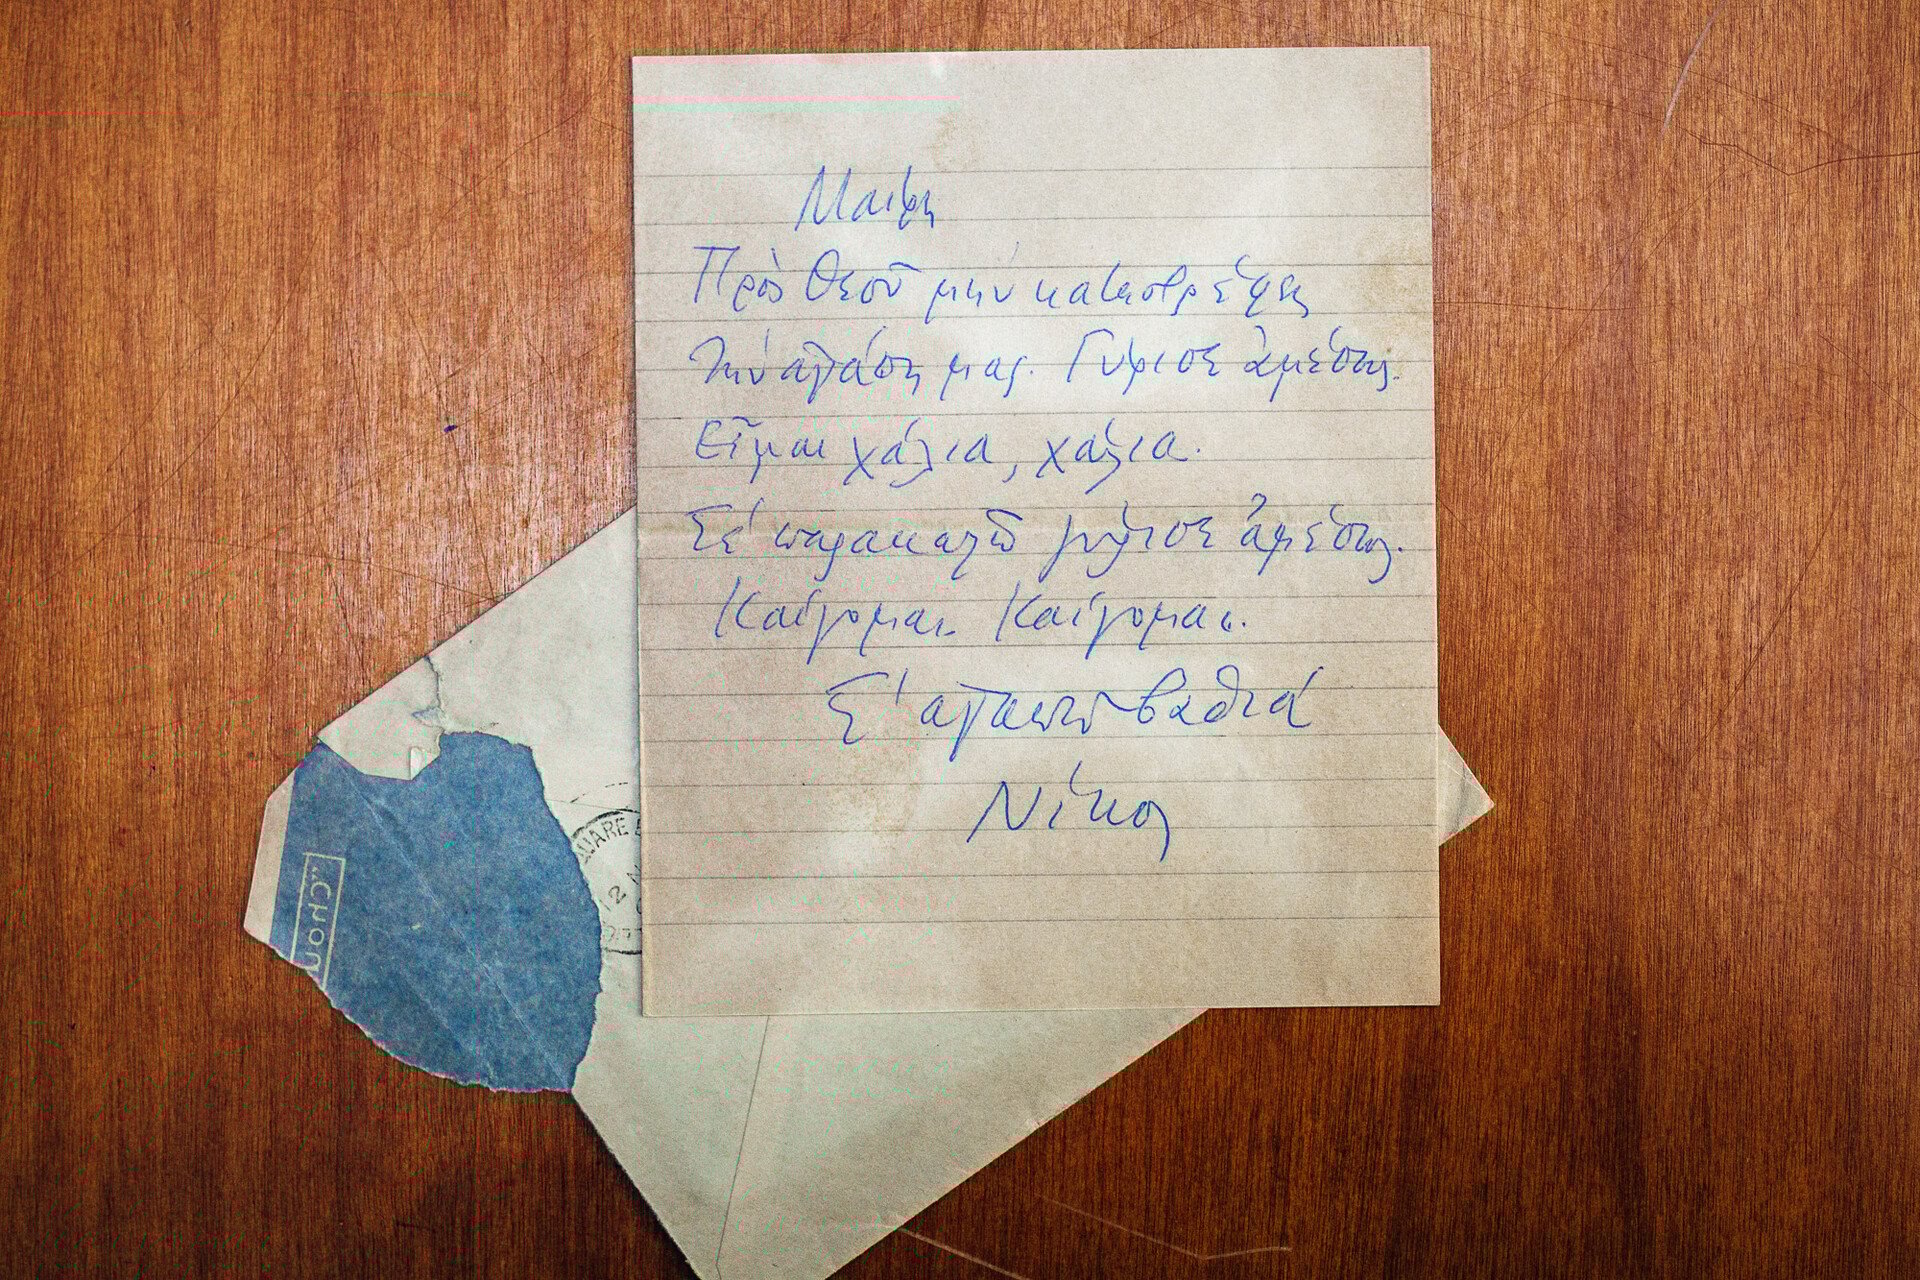 Μαίρη
Πρὸς Θεοῦ μὴν καταστρέφεις
τὴν ἀγάπη μας. Γύρισε ἀμέσως.
Εἶμαι χάλια, χάλια.
Σὲ παρακαλῶ γύρισε ἀμέσως.
Καίγομαι. Καίγομαι.
Σ' ἀγαπῶ βαθιά
Νίκος